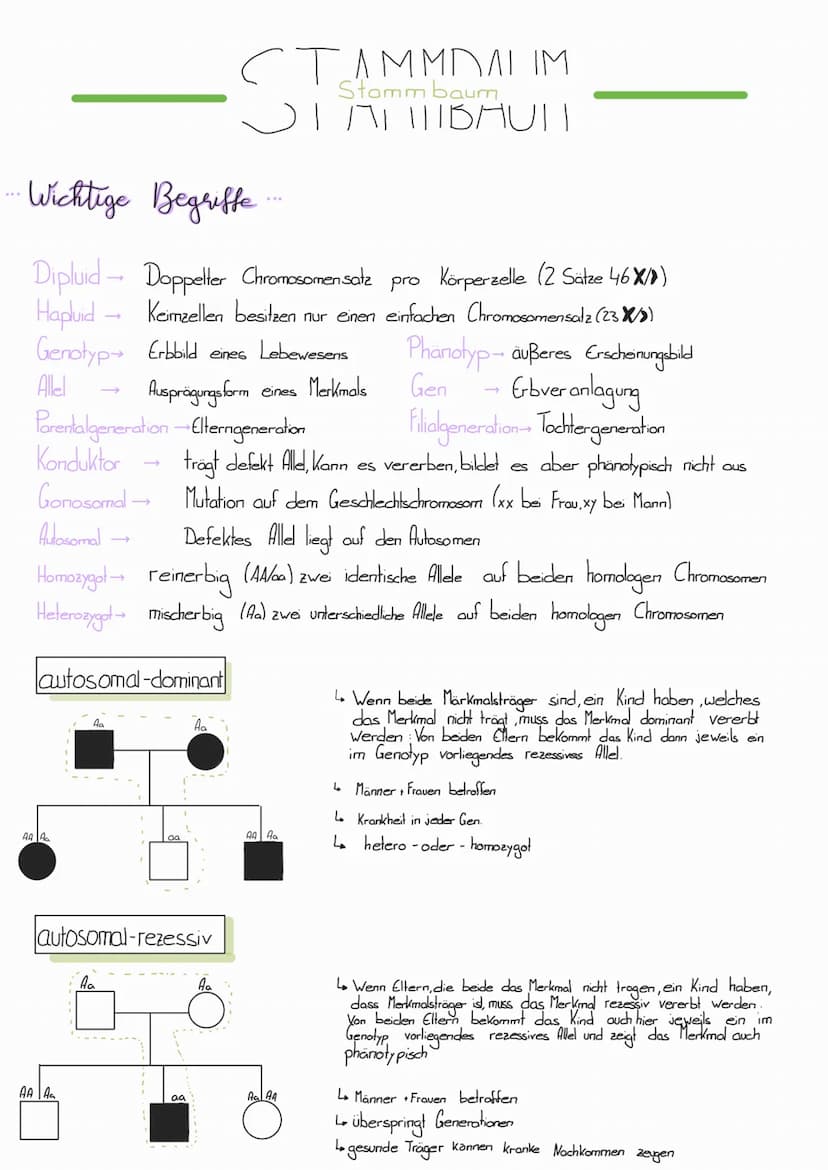 STAMMBAUM
Stammbaum
... Wichtige Begriffe ...
Dipluid → Doppelter Chromosomensatz pro Körperzelle (2 Sätze 46
Hapluid → Keimzellen besitzen nur einen einfachen Chromosomensatz (23
Genotyp → Erbbild eines Lebewesens Phänotyp → äußeres Erscheinungsbild
Allel → Ausprägungsform eines Merkmals Gen → Erbveranlagung
Parentalgeneration → Elterngeneration Filialgeneration → Tochtergeneration
Konduktor → trägt defekt Allel, Kann es vererben, bildet es aber phänotypisch nicht aus
Gonosomal → Mutation auf dem Geschlechtschromosom (xx bei Frau, xy bei Mann)
Autosomal → Defektes Allel liegt auf den Autosomen
Homozygot → reinerbig (AA/aa) zwei identische Allele auf beiden homologen Chromosomen
Heterozygot → mischerbig (Aa) zwei unterschiedliche Allele auf beiden homologen Chromosomen
autosomal-dominant
Aa Aa
AA Aa aa AA Aa
↳ Wenn beide Märkmalsträger sind, ein Kind haben, welches
das Merkmal nicht trägt, muss das Merkmal dominant vererbt
werden: Von beiden Eltern bekommt das Kind dann jeweils ein
im Genotyp vorliegendes rezessives Allel.
↳ Männer + Frauen betroffen
↳ Krankheit in jeder Gen.
↳ hetero-oder-homozygot
autosomal-rezessiv
Aa Aa
AA Aa aa Aa AA
↳ Wenn Eltern, die beide das Merkmal nicht tragen, ein Kind haben,
dass Merkmalsträger ist, muss das Merkmal rezessiv vererbt werden.
Von beiden Eltern bekommt das Kind auch hier jeweils ein im
Genotyp vorliegendes rezessives Allel und zeigt das Merkmal auch
phänotypisch
↳ Männer + Frauen betroffen
↳ überspringt Generationen
↳ gesunde Träger kännen kranke Nachkommen zeugen